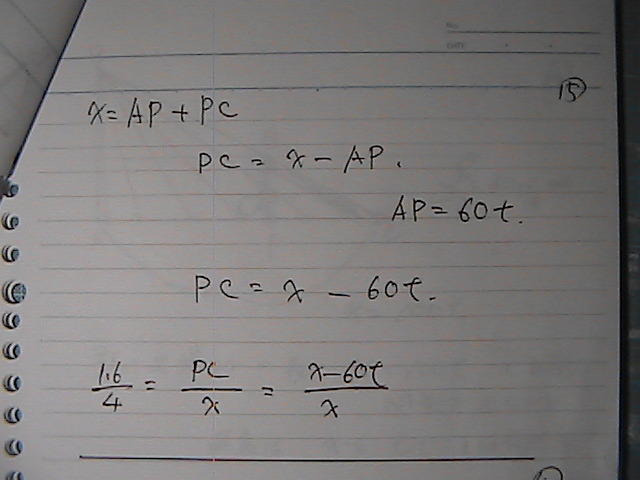 No.
DATE
⑮
x = AP + PC
PC = x - AP.
AP = 60t.
PC = x - 60t.
1.6/4 = PC/x = x-60t/x